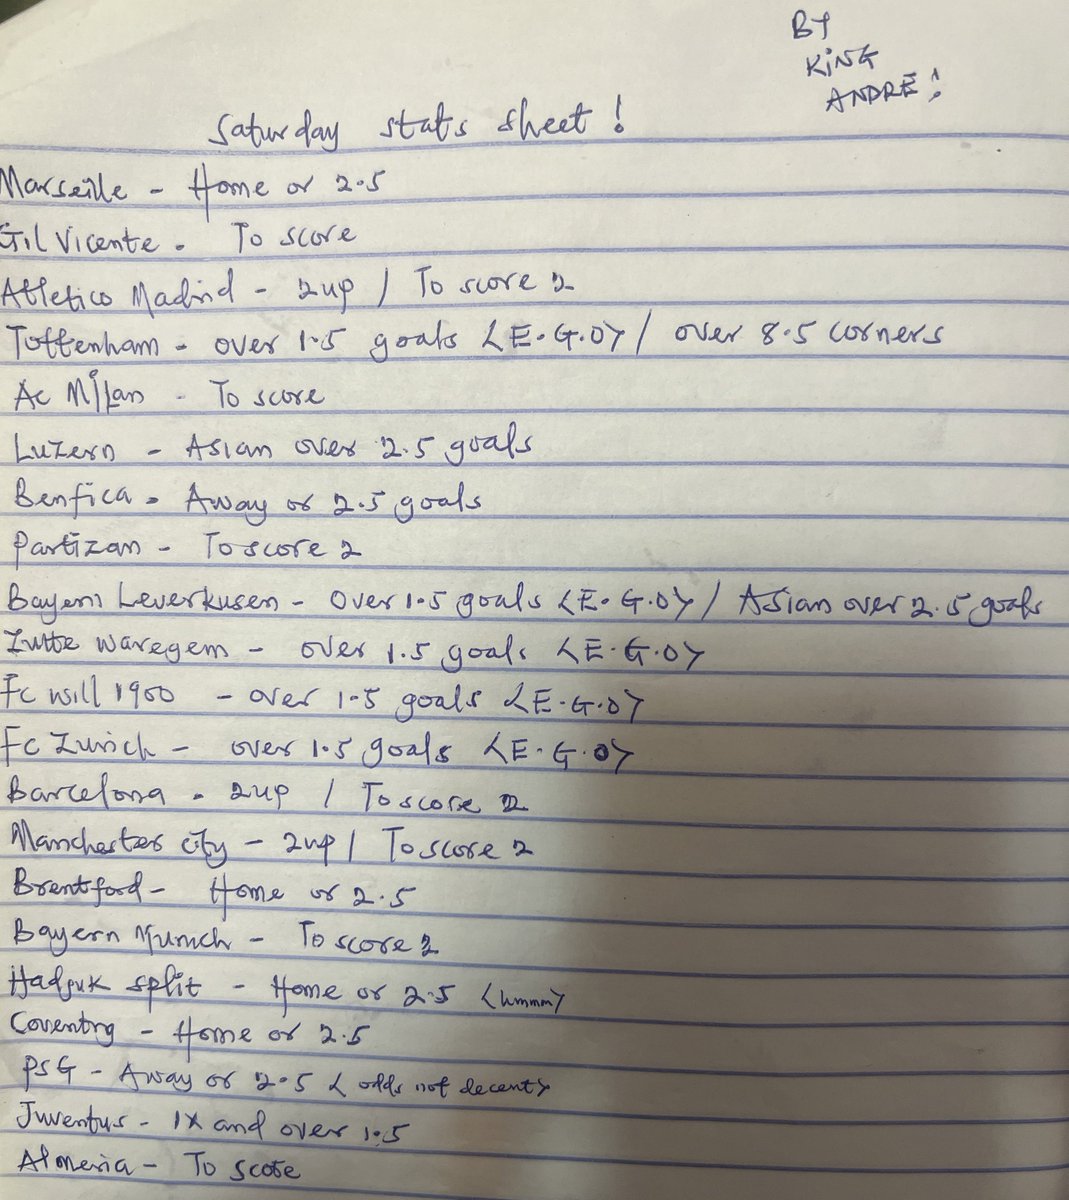 BY
KING
ANDRE!
Saturday stats sheet!
Marseille - Home or 2.5
Gil Vicente - To score
Atletico Madrid - 2up / To score 2
Tottenham - over 1.5 goals <E.G.O> / over 8.5 corners
Ac Milan - To score
Luzern - Asian over 2.5 goals
Benfica - Away or 2.5 goals
Partizan - To score 2
Bayern Leverkusen - Over 1.5 goals <E.G.O> / Asian over 2.5 goals
Zulte Waregem - over 1.5 goals <E.G.O>
Fc will 1900 - over 1.5 goals <E.G.O>
Fc Zurich - over 1.5 goals <E.G.O>
Barcelona - 2up / To score 2
Manchester city - 2up / To score 2
Brentford - Home or 2.5
Bayern Munich - To score 2
Hadjuk split - Home or 2.5 <hmmm>
Coventry - Home or 2.5
PSG - Away or 2.5 < odds not decent>
Juventus - 1X and over 1.5
Almeria - To score